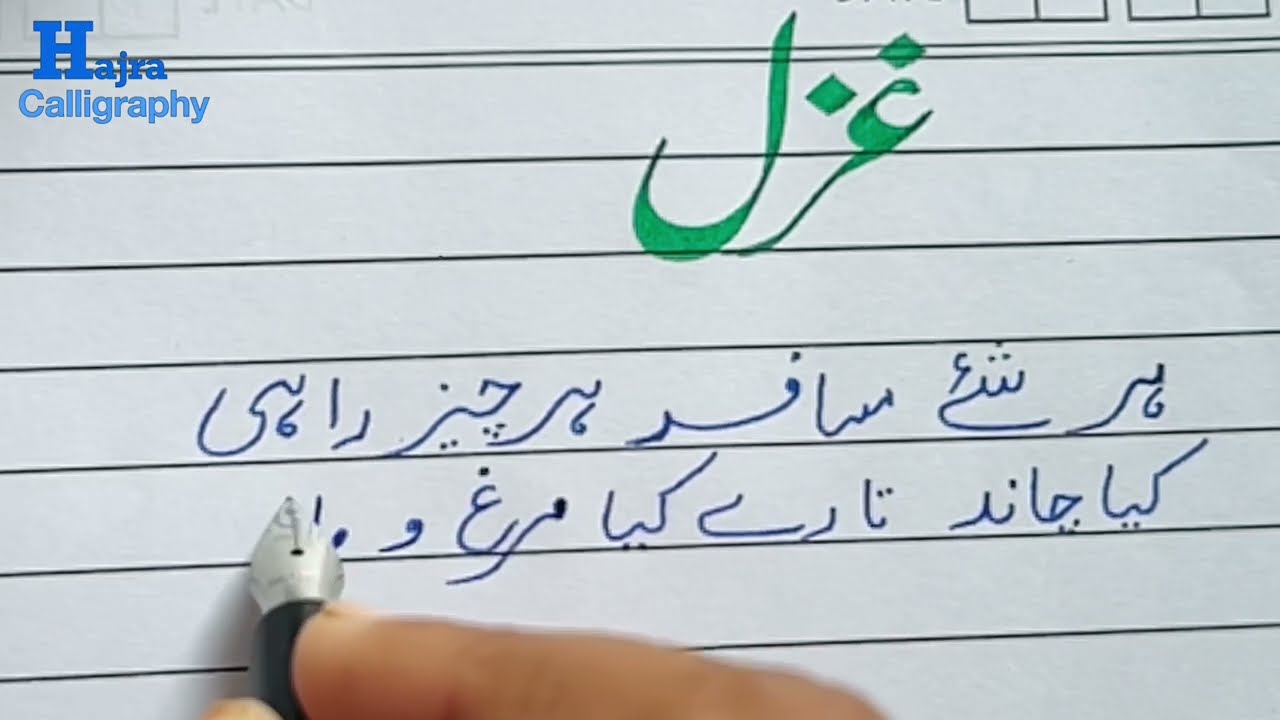 Hajra
Calligraphy
DATE
غزل
ہر شئے مسافر ہر چیز راہی
کیا چاند تارے کیا مرغ و